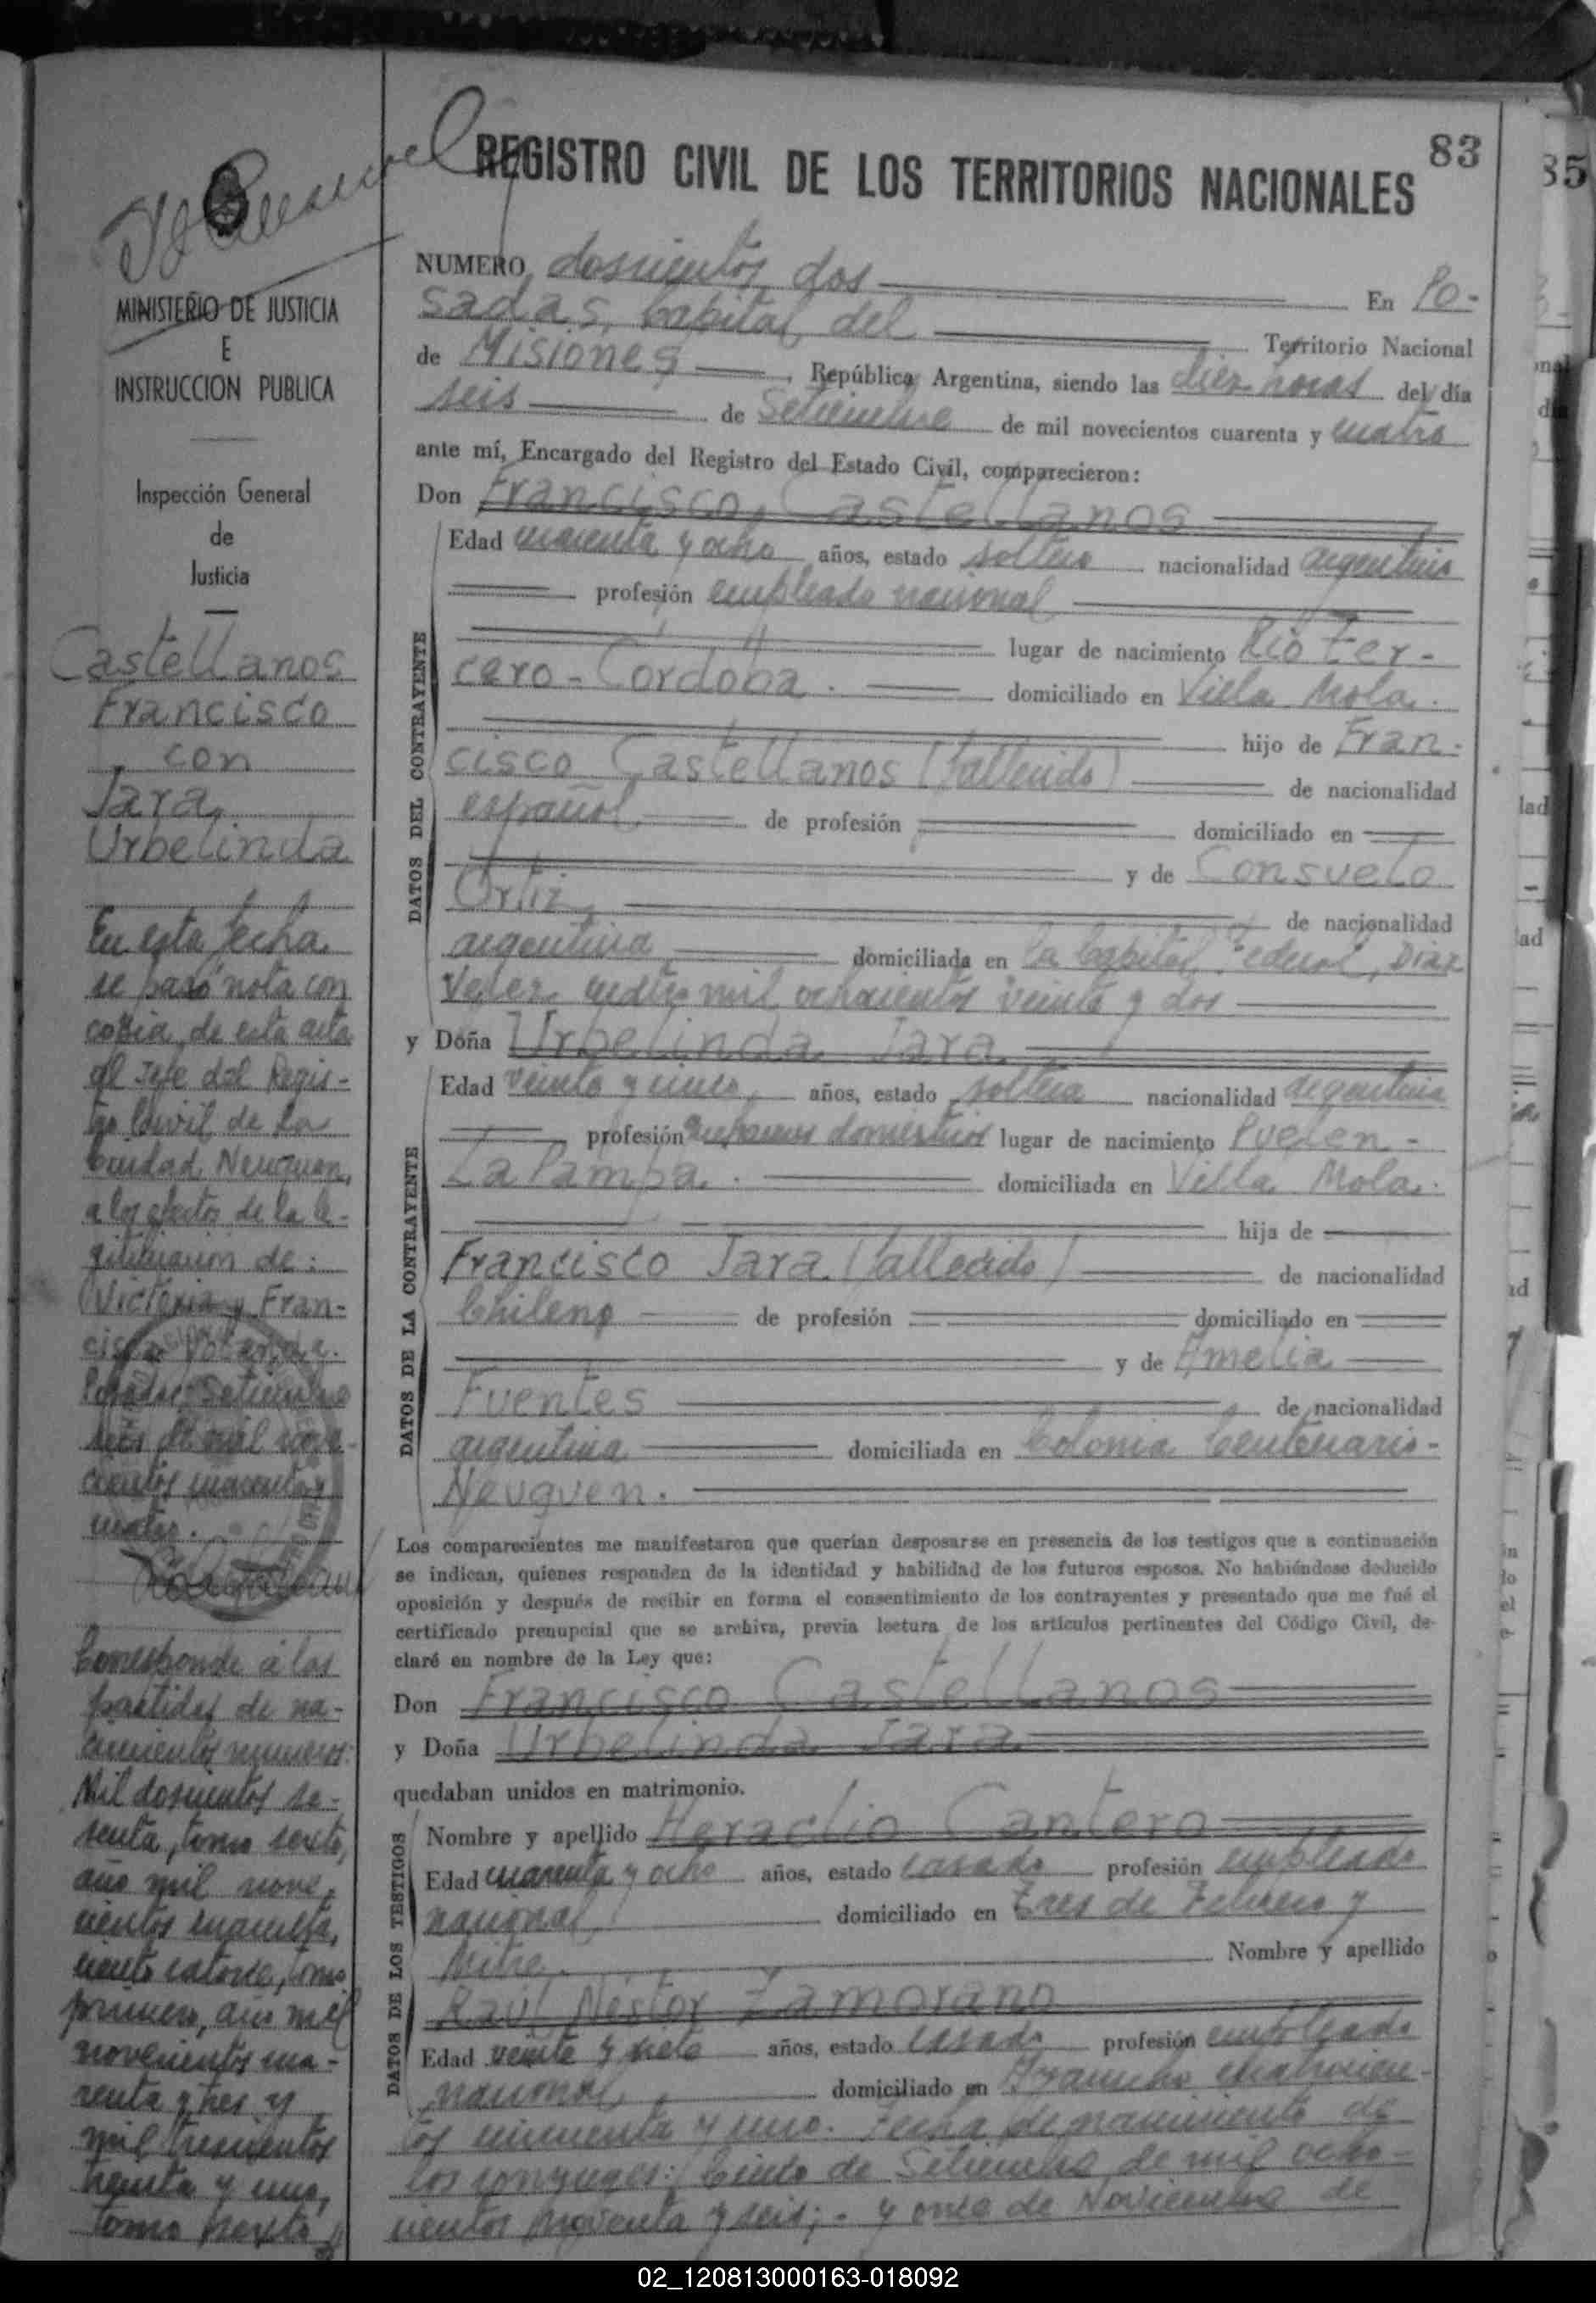 83
REGISTRO CIVIL DE LOS TERRITORIOS NACIONALES
MINISTERIO DE JUSTICIA
E
INSTRUCCION PUBLICA
Inspección General
de
Justicia
Castellanos
Francisco
con
Jara,
Urbelinda
En esta fecha
se pasó nota con
copia de esta acta
al Jefe del Regis-
tro Civil de la
Ciudad Neuquen,
a los efectos de la le-
gitimación de:
Victoria y Fran-
cisco
Posadas, Setiembre
seis de mil nove-
cientos cuarenta y
cuatro.
Corresponde á las
partidas de na-
cimientos números:
Mil doscientos se-
senta, tomo sexto,
año mil nove,
cientos cuarenta,
ciento catorce, tomo
primero, año mil
novecientos cua-
renta y tres y
mil trescientos
treinta y uno,
tomo sexto
NUMERO doscientos dos En Po-
sadas, Capital del Territorio Nacional
de Misiones, República Argentina, siendo las diez horas del día
seis de Setiembre de mil novecientos cuarenta y cuatro
ante mí, Encargado del Registro del Estado Civil, comparecieron:
Don Francisco Castellanos
Edad cuarenta y ocho años, estado soltero nacionalidad argentino
profesión empleado nacional
lugar de nacimiento Río Ter-
cero - Córdoba. domiciliado en Villa Mola.
hijo de Fran-
cisco Castellanos (fallecido) de nacionalidad
español de profesión domiciliado en
y de Consuelo
Ortiz, de nacionalidad
argentina domiciliada en la Capital Federal, Diaz
Velez cuatro mil ochocientos veinte y dos
y Doña Urbelinda Jara
Edad veinte y cinco, años, estado soltera nacionalidad argentina
profesión quehaceres domésticos lugar de nacimiento Puelen -
La Pampa. domiciliada en Villa Mola.
hija de
Francisco Jara (fallecido) de nacionalidad
Chileno de profesión domiciliado en
y de Amelia
Fuentes de nacionalidad
argentina domiciliada en Colonia Centenario -
Neuquen.
DATOS DEL CONTRAYENTE
DATOS DE LA CONTRAYENTE
Los comparecientes me manifestaron que querían desposarse en presencia de los testigos que a continuación
se indican, quienes responden de la identidad y habilidad de los futuros esposos. No habiéndose deducido
oposición y después de recibir en forma el consentimiento de los contrayentes y presentado que me fué el
certificado prenupcial que se archiva, previa lectura de los artículos pertinentes del Código Civil, de-
claré en nombre de la Ley que:
Don Francisco Castellanos
y Doña Urbelinda Jara
quedaban unidos en matrimonio.
DATOS DE LOS TESTIGOS
Nombre y apellido Heraclio Cantero
Edad cuarenta y ocho años, estado casado profesión empleado
nacional domiciliado en Tres de Febrero y
Mitre. Nombre y apellido
Raúl Néstor Zamorano
Edad veinte y siete años, estado casado profesión empleado
nacional, domiciliado en Ayacucho cuatrocien-
tos cincuenta y uno. Fecha de nacimiento de
los conyuges: Cinco de Setiembre de mil ocho-
cientos noventa y seis; - y once de Noviembre de
02_120813000163-018092